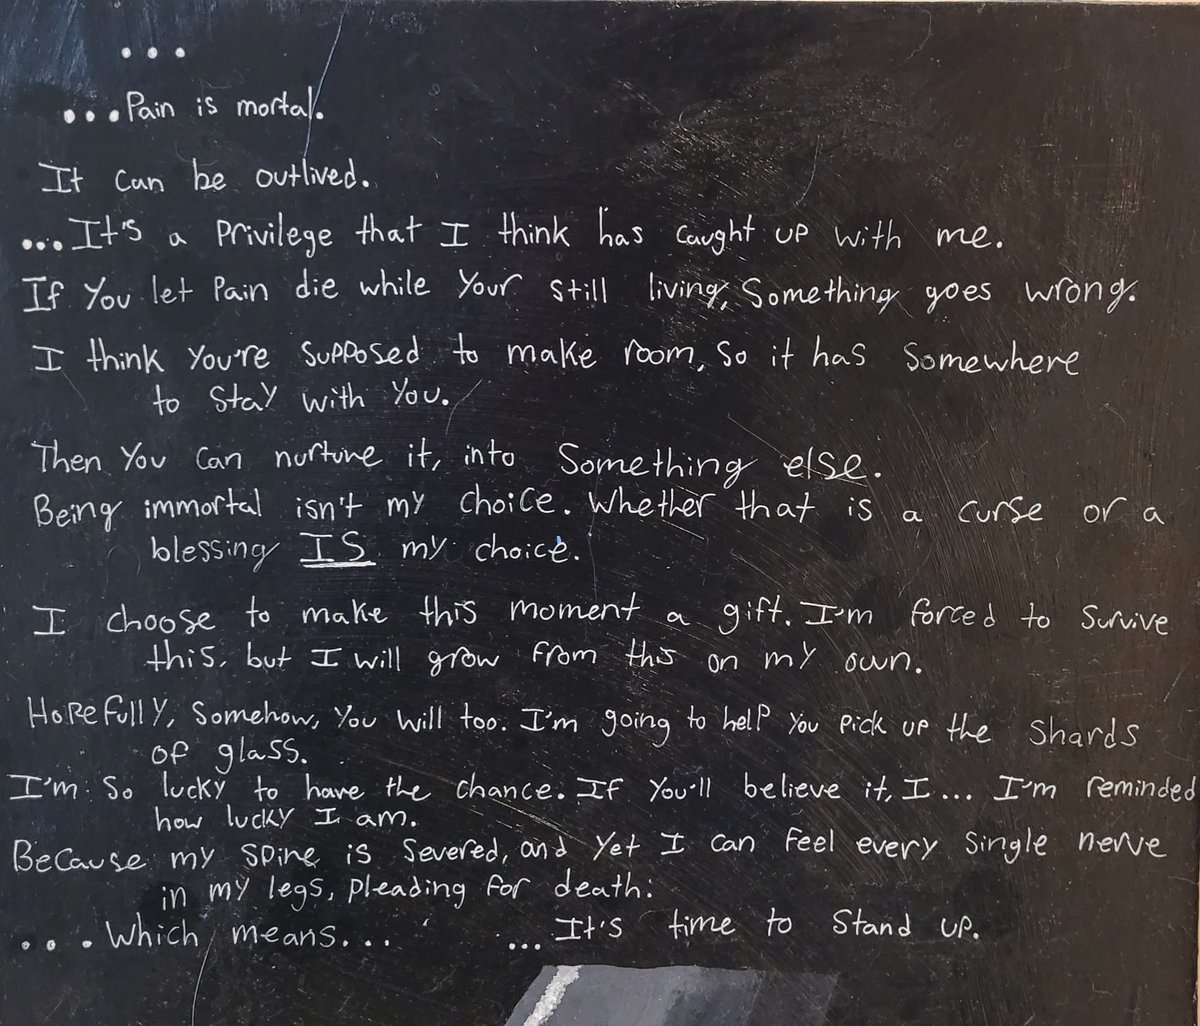 ...
...Pain is mortal.
It can be outlived.
...It's a Privilege that I think has caught up with me.
If You let Pain die while Your still living, Something goes wrong.
I think You're supposed to make room, so it has Somewhere
to stay with You.
Then You Can nurture it, into Something else.
Being immortal isn't my choice. Whether that is a curse or a
blessing IS my choice.
I choose to make this moment a gift. I'm forced to survive
this, but I will grow from this on my own.
Hopefully, Somehow, You will too. I'm going to help you Pick up the Shards
of glass.
I'm so lucky to have the chance. If You'll believe it, I... I'm reminded
how lucky I am.
Because my spine is severed, and yet I can feel every single nerve
in my legs, pleading for death.
...Which means... ...It's time to Stand up.